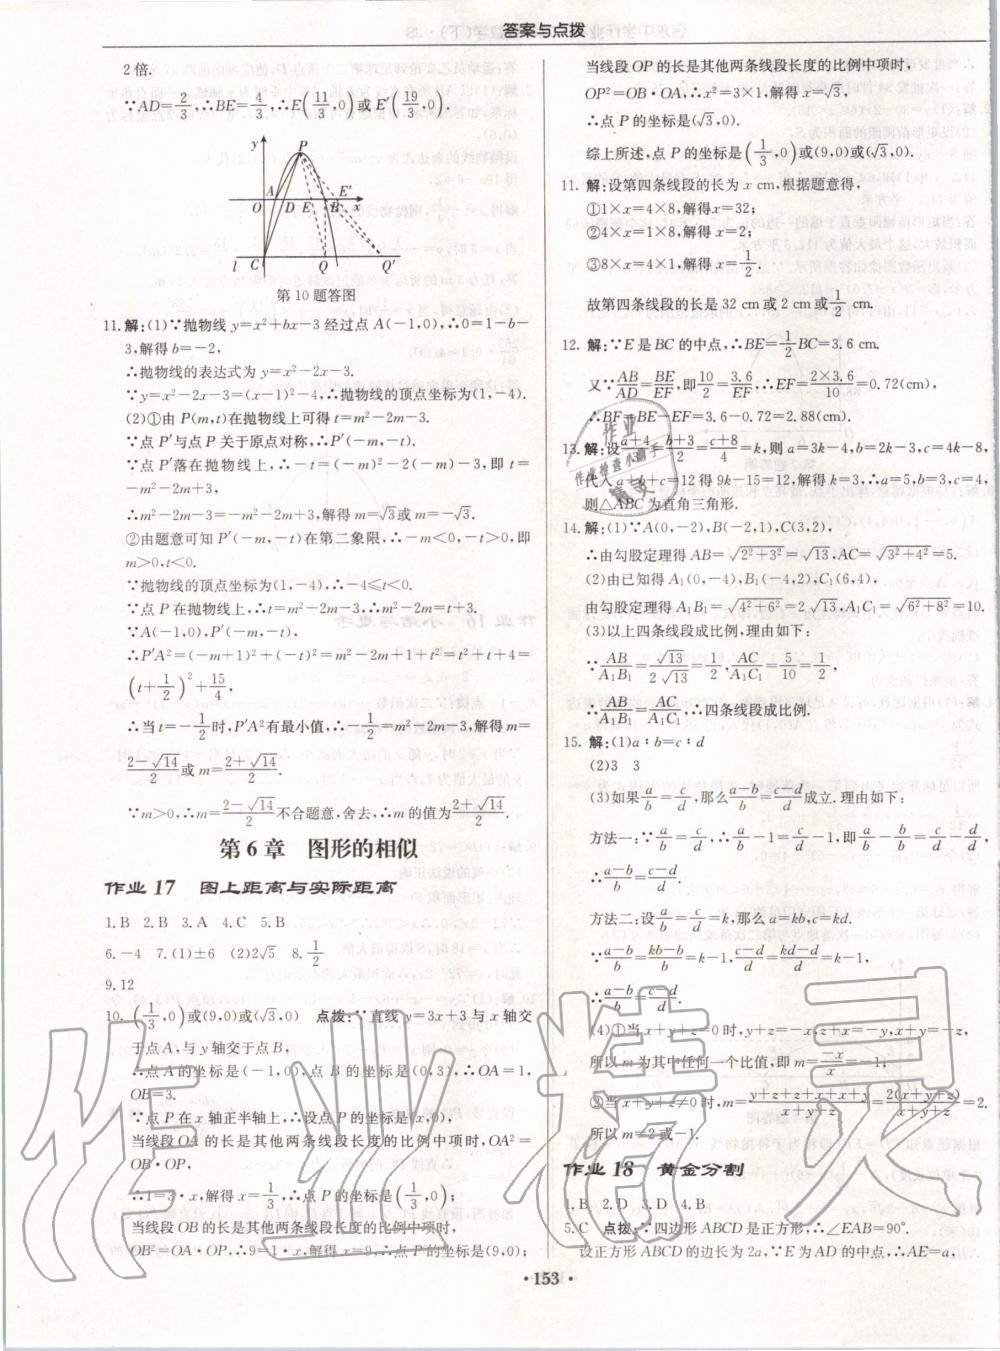 答案与点拨
2倍.
∵AD=2/3,∴BE=4/3,∴E(11/3,0)或E′(19/3,0).
y P A E′ O D E B x l C Q Q′
第10题答图
11.解:(1)∵抛物线y=x²+bx-3经过点A(-1,0),∴0=1-b-
3,解得b=-2,
∴抛物线的表达式为y=x²-2x-3.
∵y=x²-2x-3=(x-1)²-4,∴抛物线的顶点坐标为(1,-4).
(2)①由P(m,t)在抛物线上可得t=m²-2m-3.
∵点P′与点P关于原点对称,∴P′(-m,-t).
∵点P′落在抛物线上,∴-t=(-m)²-2(-m)-3,即t=
-m²-2m+3,
∴m²-2m-3=-m²-2m+3,解得m=√3或m=-√3.
②由题意可知P′(-m,-t)在第二象限,∴-m<0,-t>0,即
m>0,t<0.
∵抛物线的顶点坐标为(1,-4),∴-4≤t<0.
∵点P在抛物线上,∴t=m²-2m-3,∴m²-2m=t+3.
∵A(-1,0),P′(-m,-t),
∴P′A²=(-m+1)²+(-t)²=m²-2m+1+t²=t²+t+4=
(t+1/2)²+15/4,
∴当t=-1/2时,P′A²有最小值,∴-1/2=m²-2m-3,解得m=
(2-√14)/2或m=(2+√14)/2.
∵m>0,∴m=(2-√14)/2不合题意,舍去,∴m的值为(2+√14)/2.
第6章 图形的相似
作业17 图上距离与实际距离
1.B 2.B 3.A 4.C 5.B
6.-4 7.(1)±6 (2)2√5 8.1/2
9.12
10.(1/3,0)或(9,0)或(√3,0) 点拨:∵直线y=3x+3与x轴交
于点A,与y轴交于点B,
∴点A的坐标是(-1,0),点B的坐标是(0,3),∴OA=1,
OB=3.
∵点P在x轴正半轴上,∴设点P的坐标是(x,0),
当线段OA的长是其他两条线段长度的比例中项时,OA²=
OB·OP,
∴1=3·x,解得x=1/3,∴点P的坐标是(1/3,0);
当线段OB的长是其他两条线段长度的比例中项时,
OB²=OA·OP,∴9=1·x,解得x=9,∴点P的坐标是(9,0);
当线段OP的长是其他两条线段长度的比例中项时,
OP²=OB·OA,∴x²=3×1,解得x=√3,
∴点P的坐标是(√3,0).
综上所述,点P的坐标是(1/3,0)或(9,0)或(√3,0).
11.解:设第四条线段的长为x cm,根据题意得,
①1×x=4×8,解得x=32;
②4×x=1×8,解得x=2;
③8×x=4×1,解得x=1/2.
故第四条线段的长是32 cm或2 cm或1/2 cm.
12.解:∵E是BC的中点,∴BE=1/2BC=3.6 cm.
又∵AB/AD=BE/EF,即10/2=3.6/EF,∴EF=(2×3.6)/10=0.72(cm),
∴BF=BE-EF=3.6-0.72=2.88(cm).
13.解:设(a+4)/3=(b+3)/2=(c+8)/4=k,则a=3k-4,b=2k-3,c=4k-8,
代入a+b+c=12得9k-15=12,解得k=3,∴a=5,b=3,c=4,
则△ABC为直角三角形.
14.解:(1)∵A(0,-2),B(-2,1),C(3,2),
∴由勾股定理得AB=√(2²+3²)=√13,AC=√(3²+4²)=5.
(2)由已知得A₁(0,-4),B₁(-4,2),C₁(6,4),
由勾股定理得A₁B₁=√(4²+6²)=2√13,A₁C₁=√(6²+8²)=10.
(3)以上四条线段成比例,理由如下:
∵AB/A₁B₁=√13/(2√13)=1/2,AC/A₁C₁=5/10=1/2,
∴AB/A₁B₁=AC/A₁C₁,∴四条线段成比例.
15.解:(1)a∶b=c∶d
(2)3 3
(3)如果a/b=c/d,那么(a-b)/b=(c-d)/d成立.理由如下:
方法一:∵a/b=c/d,∴a/b-1=c/d-1,即a/b-b/b=c/d-d/d,
∴(a-b)/b=(c-d)/d.
方法二:设a/b=c/d=k,那么a=kb,c=kd.
∵(a-b)/b=(kb-b)/b=k-1,(c-d)/d=(kd-d)/d=k-1,
∴(a-b)/b=(c-d)/d.
(4)①当x+y+z=0时,y+z=-x,z+x=-y,x+y=-z,
所以m为其中任何一个比值,即m=-x/x=-1;
②当x+y+z≠0时,m=(y+z+z+x+x+y)/(x+y+z)=2(x+y+z)/(x+y+z)=2.
所以m=2或-1.
作业18 黄金分割
1.B 2.D 3.D 4.B
5.C 点拨:∵四边形ABCD是正方形,∴∠EAB=90°.
设正方形ABCD的边长为2a,∵E为AD的中点,∴AE=a,
·153·
作业精灵